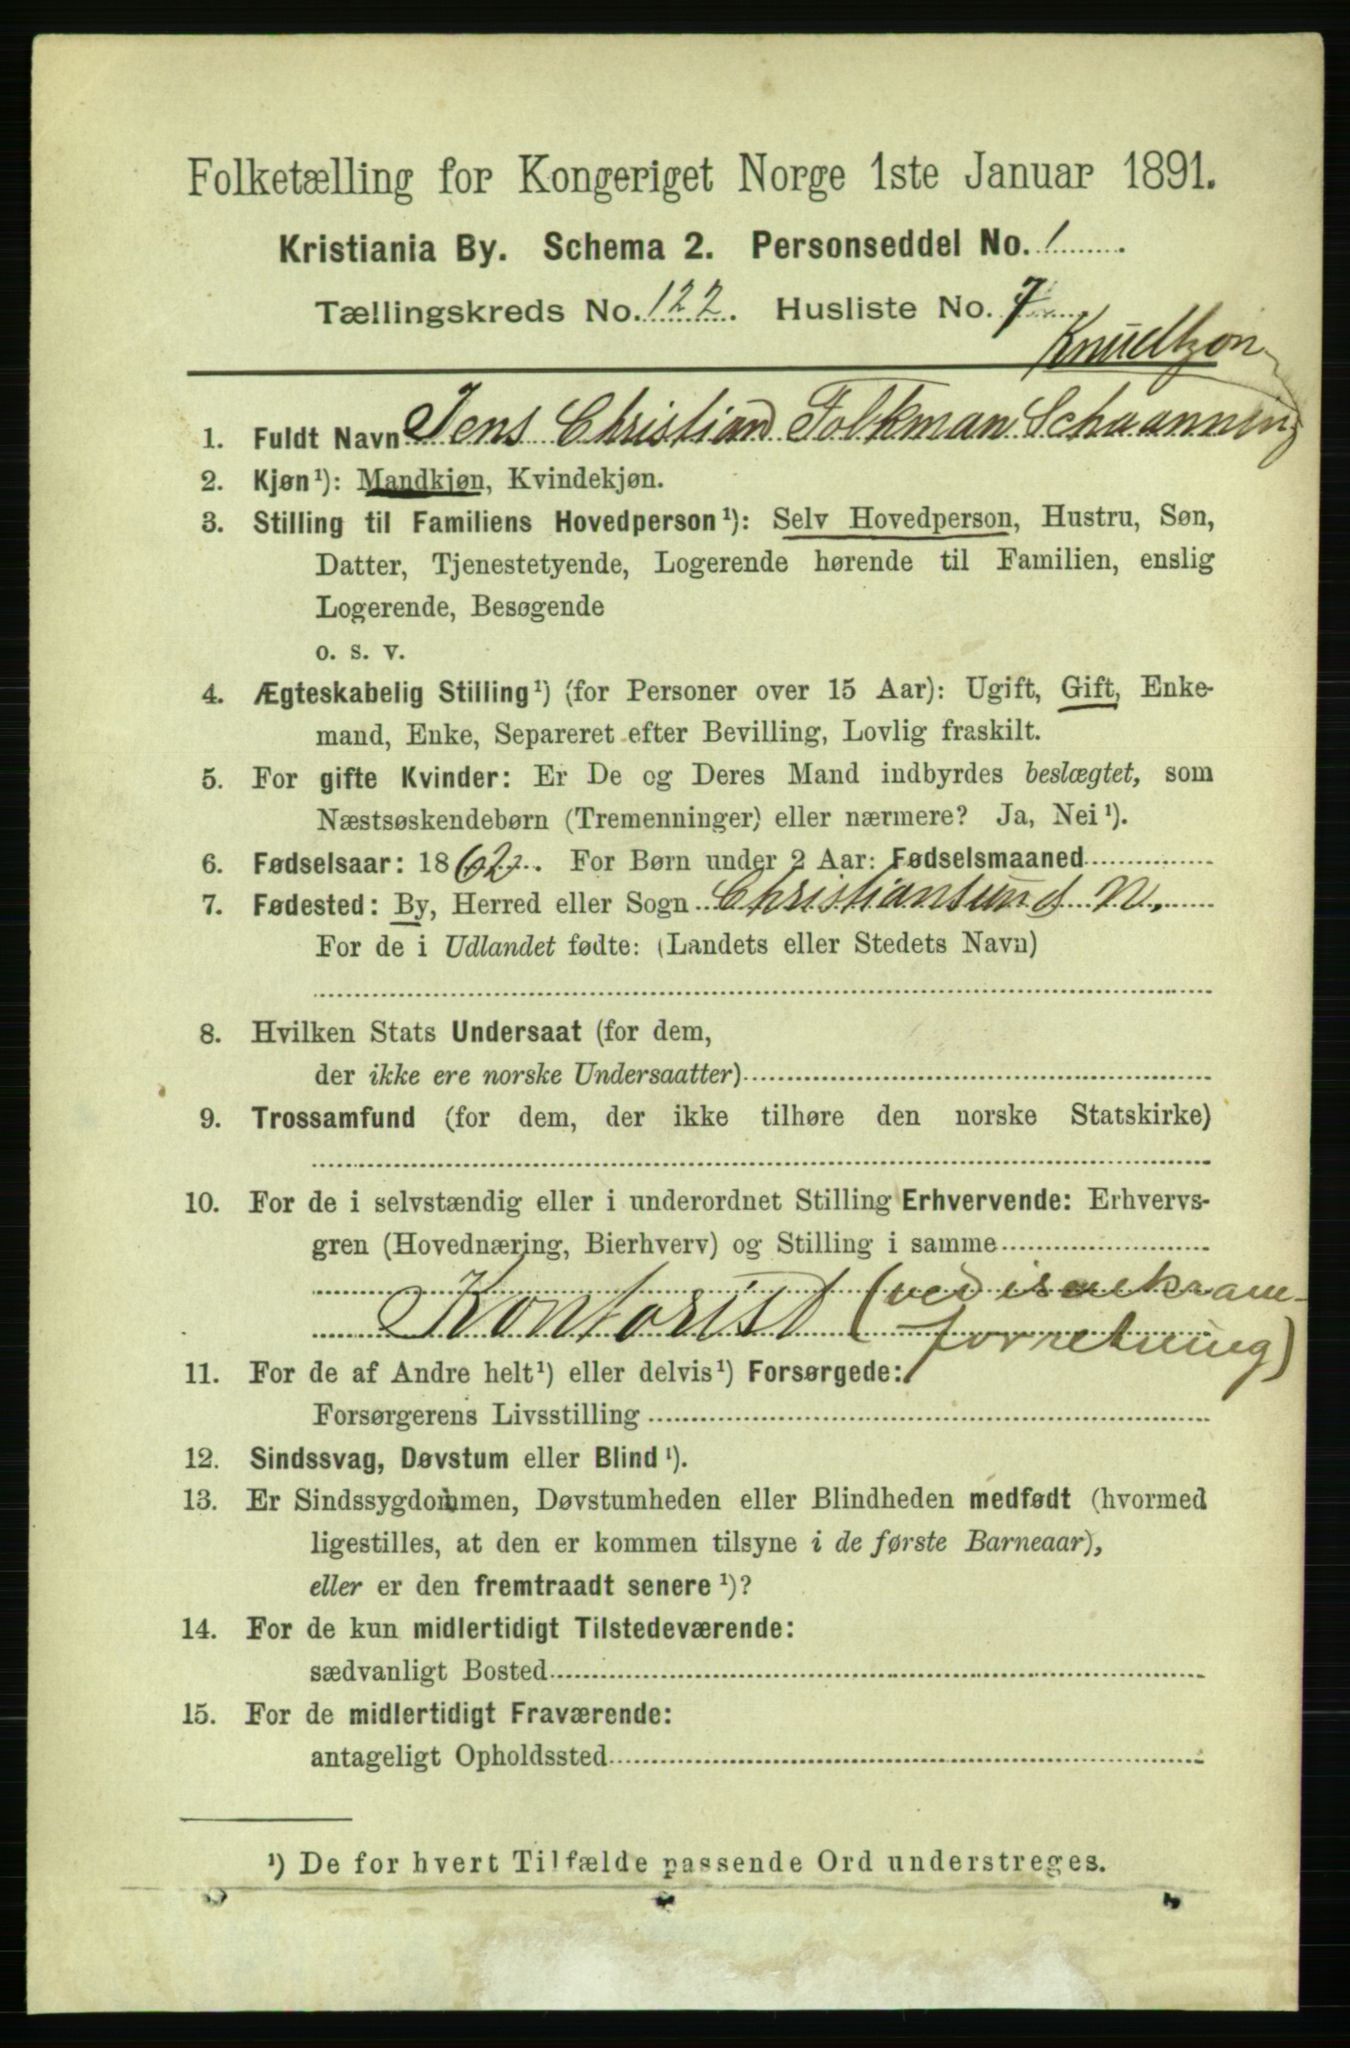 Folketælling for Kongeriget Norge 1ste Januar 1891.
Kristiania By. Schema 2. Personseddel No. 1
Tællingskreds No. 122. Husliste No. 7
Knudtzon
1. Fuldt Navn Jens Christian Folkman Schaanning
2. Kjøn¹): Mandkjøn, Kvindekjøn.
3. Stilling til Familiens Hovedperson¹): Selv Hovedperson, Hustru, Søn,
Datter, Tjenestetyende, Logerende hørende til Familien, enslig
Logerende, Besøgende
o. s. v.
4. Ægteskabelig Stilling¹) (for Personer over 15 Aar): Ugift, Gift, Enke-
mand, Enke, Separeret efter Bevilling, Lovlig fraskilt.
5. For gifte Kvinder: Er De og Deres Mand indbyrdes beslægtet, som
Næstsøskendebørn (Tremenninger) eller nærmere? Ja, Nei¹).
6. Fødselsaar: 1862. For Børn under 2 Aar: Fødselsmaaned
7. Fødested: By, Herred eller Sogn Christiansund N.
For de i Udlandet fødte: (Landets eller Stedets Navn)
8. Hvilken Stats Undersaat (for dem,
der ikke ere norske Undersaatter)
9. Trossamfund (for dem, der ikke tilhøre den norske Statskirke)
10. For de i selvstændig eller i underordnet Stilling Erhvervende: Erhvervs-
gren (Hovednæring, Bierhverv) og Stilling i samme
Kontorist (ved isenkram-
forretning)
11. For de af Andre helt¹) eller delvis¹) Forsørgede:
Forsørgerens Livsstilling
12. Sindssvag, Døvstum eller Blind¹).
13. Er Sindssygdommen, Døvstumheden eller Blindheden medfødt (hvormed
ligestilles, at den er kommen tilsyne i de første Barneaar),
eller er den fremtraadt senere¹)?
14. For de kun midlertidigt Tilstedeværende:
sædvanligt Bosted
15. For de midlertidigt Fraværende:
antageligt Opholdssted
¹) De for hvert Tilfælde passende Ord understreges.